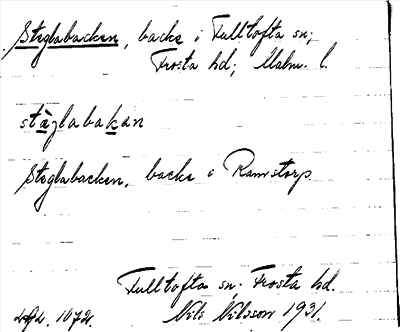 Steglabacken, backe i Fulltofta sn;
Frosta hd; Malm. l.
stæ̀glabakan
Steglabacken, backe i Ramstorp.
Fulltofta sn. Frosta hd.
1072. Nils Nilsson 1931.